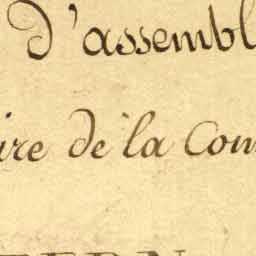 d'assembl
ire de la Com